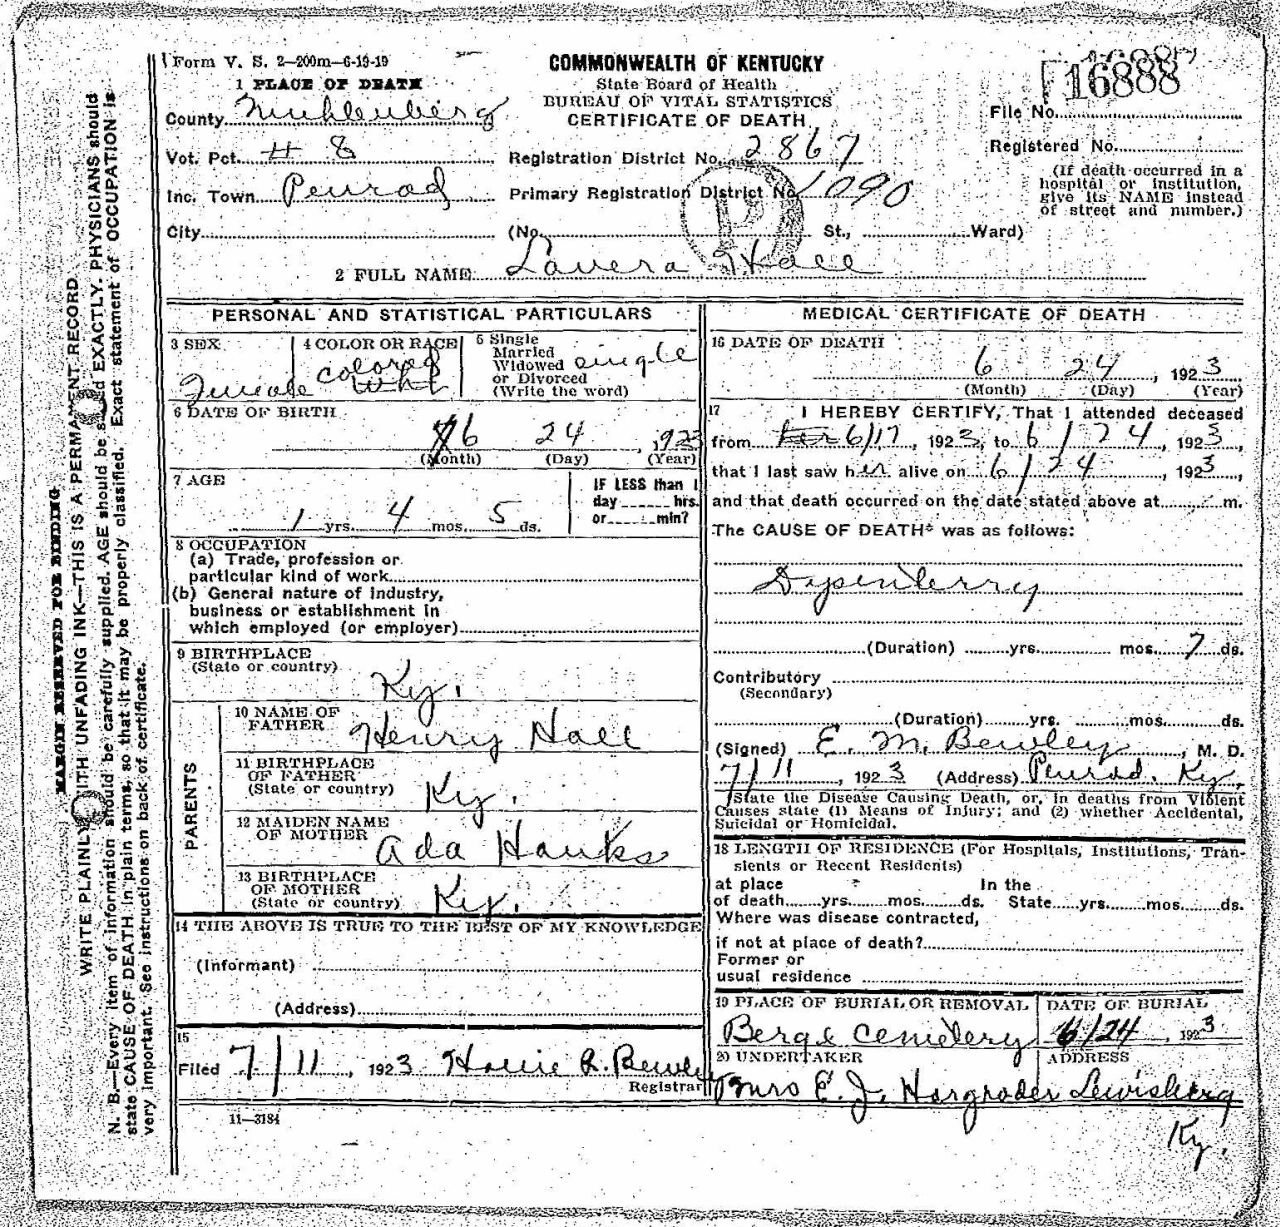 Form V. S. 2—200m—6-19-19
COMMONWEALTH OF KENTUCKY
State Board of Health
BUREAU OF VITAL STATISTICS
CERTIFICATE OF DEATH
16888
1 PLACE OF DEATH
County Muhlenberg
File No.
Vot. Pct. # 8
Registration District No. 2867
Registered No.
Inc. Town Penrod
Primary Registration District No. 1090
(If death occurred in a hospital or institution, give its NAME instead of street and number.)
City
(No. St., Ward)
2 FULL NAME Lavera Hall
PERSONAL AND STATISTICAL PARTICULARS
3 SEX
Female
4 COLOR OR RACE
colored
5 Single
Married
Widowed
or Divorced
(Write the word)
single
6 DATE OF BIRTH
6 24 , 1923
(Month) (Day) (Year)
7 AGE
1 yrs. 4 mos. 5 ds.
IF LESS than 1
day hrs.
or min?
8 OCCUPATION
(a) Trade, profession or
particular kind of work
(b) General nature of Industry,
business or establishment in
which employed (or employer)
9 BIRTHPLACE
(State or country)
Ky.
PARENTS
10 NAME OF
FATHER
Henry Hall
11 BIRTHPLACE
OF FATHER
(State or country)
Ky.
12 MAIDEN NAME
OF MOTHER
Ada Hanks
13 BIRTHPLACE
OF MOTHER
(State or country)
Ky.
14 THE ABOVE IS TRUE TO THE BEST OF MY KNOWLEDGE
(Informant)
(Address)
15
Filed 7/11, 1923 R. Bewley
Registrar
11—3184
MEDICAL CERTIFICATE OF DEATH
16 DATE OF DEATH
6 24 , 1923
(Month) (Day) (Year)
17 I HEREBY CERTIFY, That I attended deceased
from 6/17, 1923, to 6/24, 1923,
that I last saw her alive on 6/24, 1923,
and that death occurred on the date stated above at m.
The CAUSE OF DEATH* was as follows:
Dysenterry
(Duration) yrs. mos. 7 ds.
Contributory
(Secondary)
(Duration) yrs. mos. ds.
(Signed) E. M. Bewley, M. D.
7/11, 1923 (Address) Penrod. Ky.
State the Disease Causing Death, or, in deaths from Violent
Causes state (1) Means of Injury; and (2) whether Accidental,
Suicidal or Homicidal.
18 LENGTH OF RESIDENCE (For Hospitals, Institutions, Tran-
sients or Recent Residents)
at place In the
of death yrs. mos. ds. State yrs. mos. ds.
Where was disease contracted,
if not at place of death?
Former or
usual residence
19 PLACE OF BURIAL OR REMOVAL
Berge Cemetery
DATE OF BURIAL
6/24, 1923
20 UNDERTAKER
Mrs E. J. Hargroder
ADDRESS
Lewisberg
Ky.
MARGIN RESERVED FOR BINDING
WRITE PLAINLY WITH UNFADING INK—THIS IS A PERMANENT RECORD
N. B.—Every item of information should be carefully supplied. AGE should be stated EXACTLY. PHYSICIANS should
state CAUSE OF DEATH in plain terms, so that it may be properly classified. Exact statement of OCCUPATION is
very important. See instructions on back of certificate.